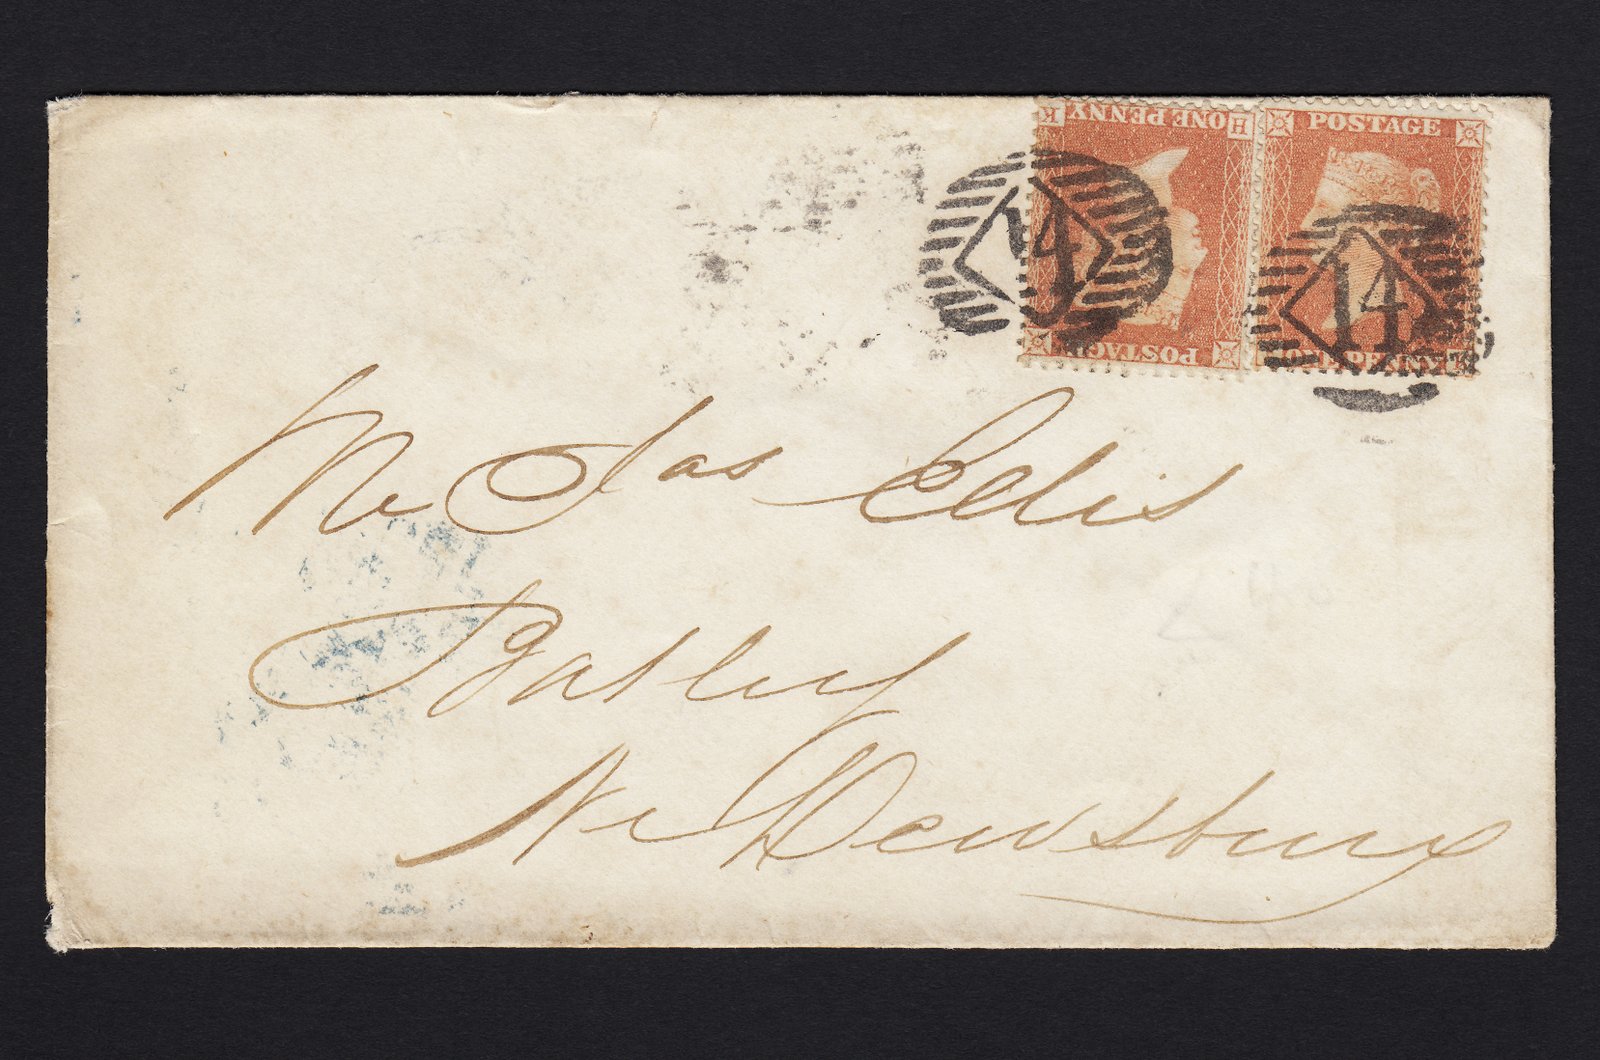 ONE PENNY
K H
POSTAGE
14
POSTAGE
14
ONE PENNY
Mr Jas Eddis
Batley
Nr Dewsbury